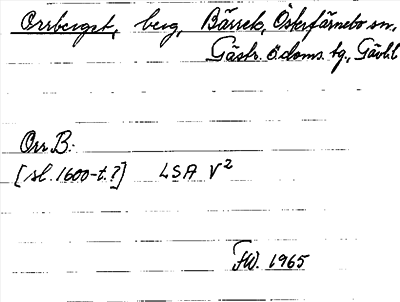 Orrberget, berg, Bärrek, Österfärnebo sn,
Gästr. ö. doms. tg., Gävl.l
Orr B:
[sl. 1600-t.?] LSA V²
FW. 1965